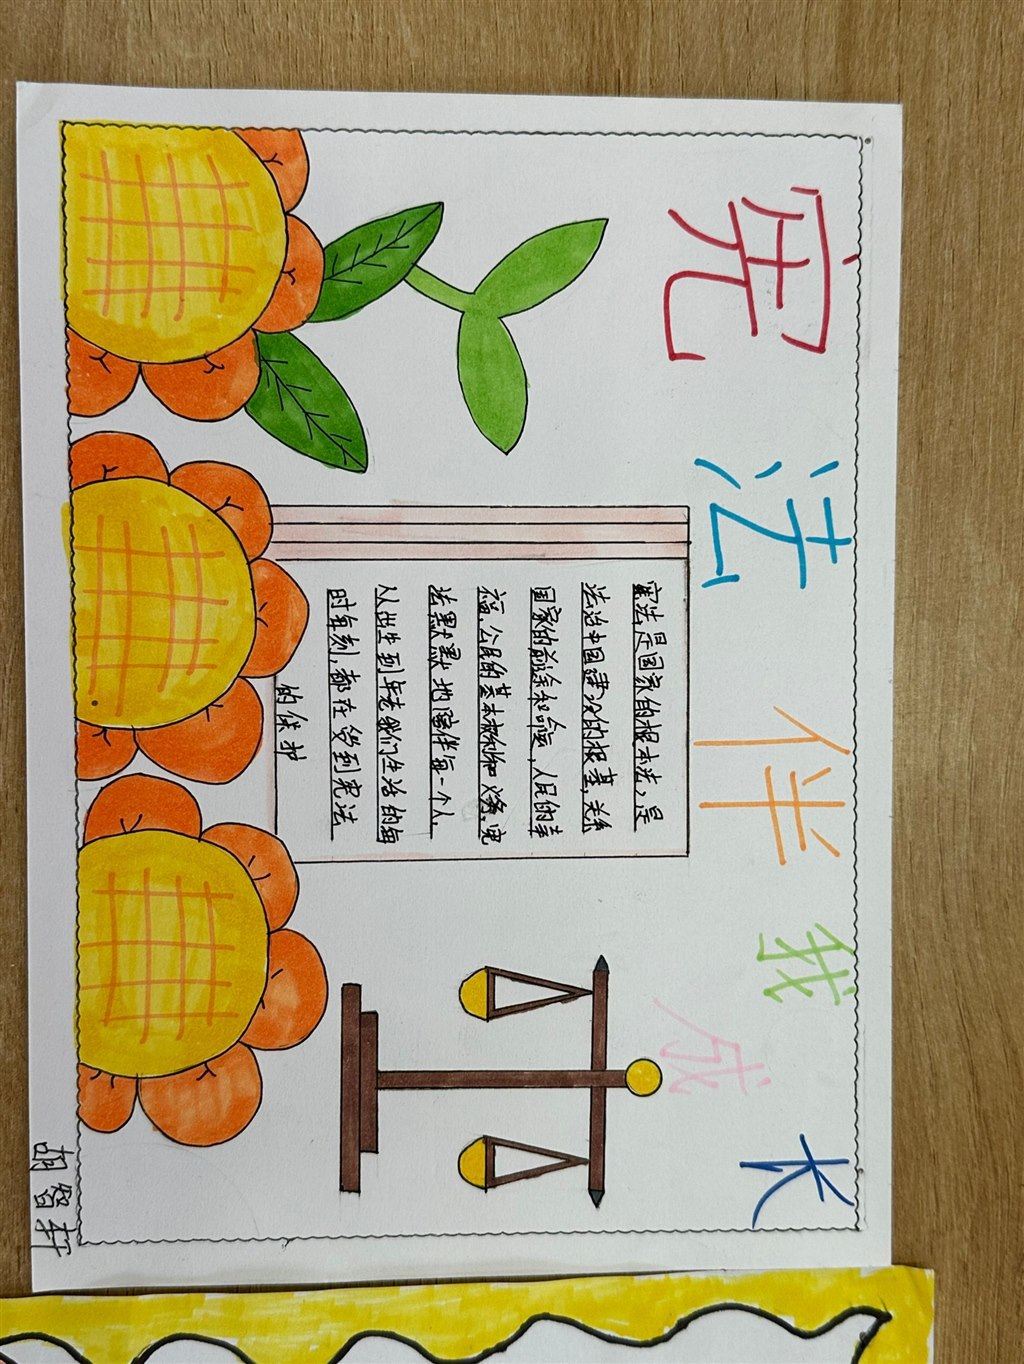 宪法伴我成长
宪法是国家的根本法，是
法治中国建设的根基，关系
国家的前途和命运，人民的幸
福，公民的基本权利和义务，宪
法默默地陪伴每一个人，
从出生到年老我们生活的每
时每刻，都在受到宪法
的保护
胡智